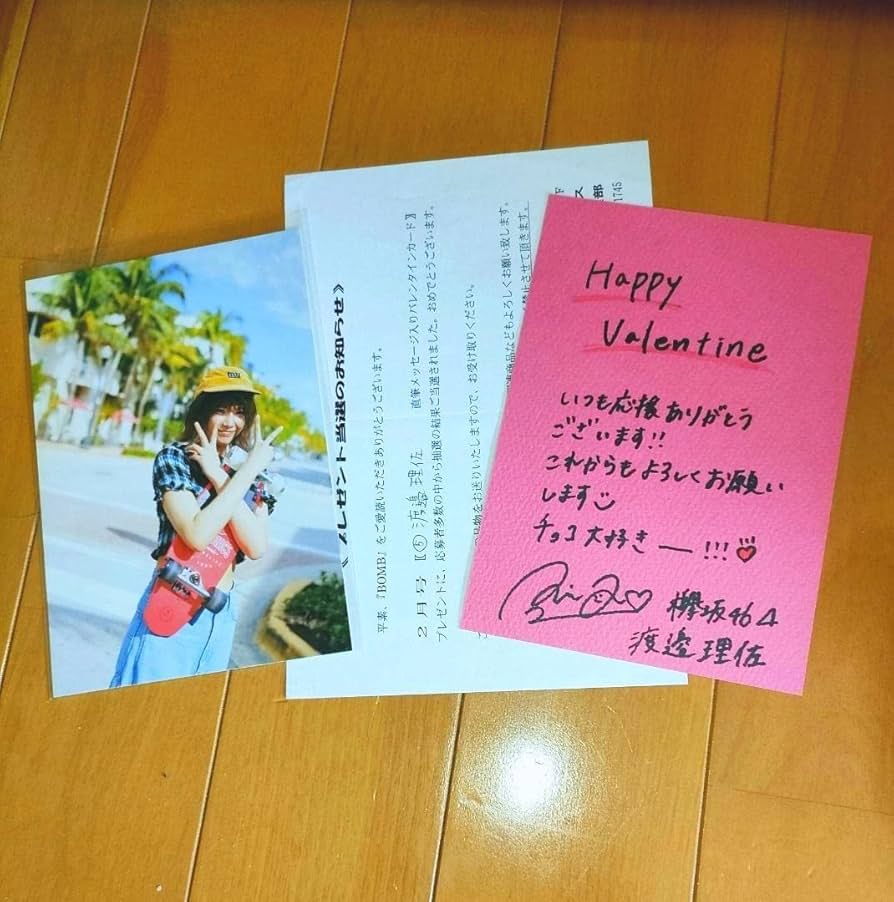 《プレゼント当選のお知らせ》
平素、『BOMB』をご愛読いただきありがとうございます。
2月号【⑤渡邉理佐 直筆メッセージ入りバレンタインカード】
プレゼントに、応募者多数の中から抽選の結果ご当選されました。おめでとうございます。
品物をお送りいたしますので、お受け取りください。
商品などもよろしくお願い致します。
禁止させて頂きます。
1745
Happy
Valentine
いつも応援ありがとう
ございます!!
これからもよろしくお願い
します
チョコ大好きー!!!
♡
欅坂46
渡邉理佐